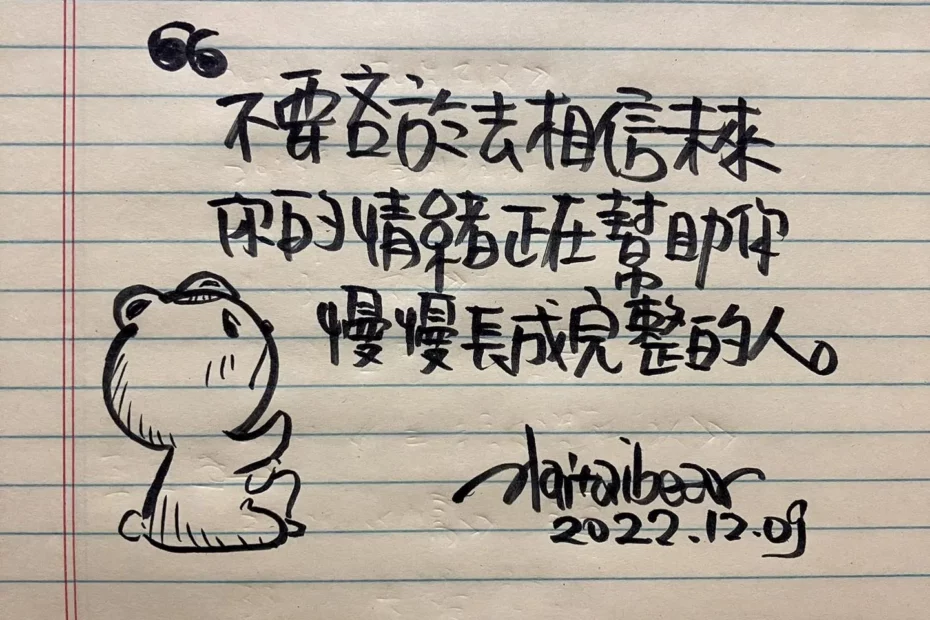 “
不要吝於去相信未來
你的情緒正在幫助你
慢慢長成完整的人。
2022.12.09